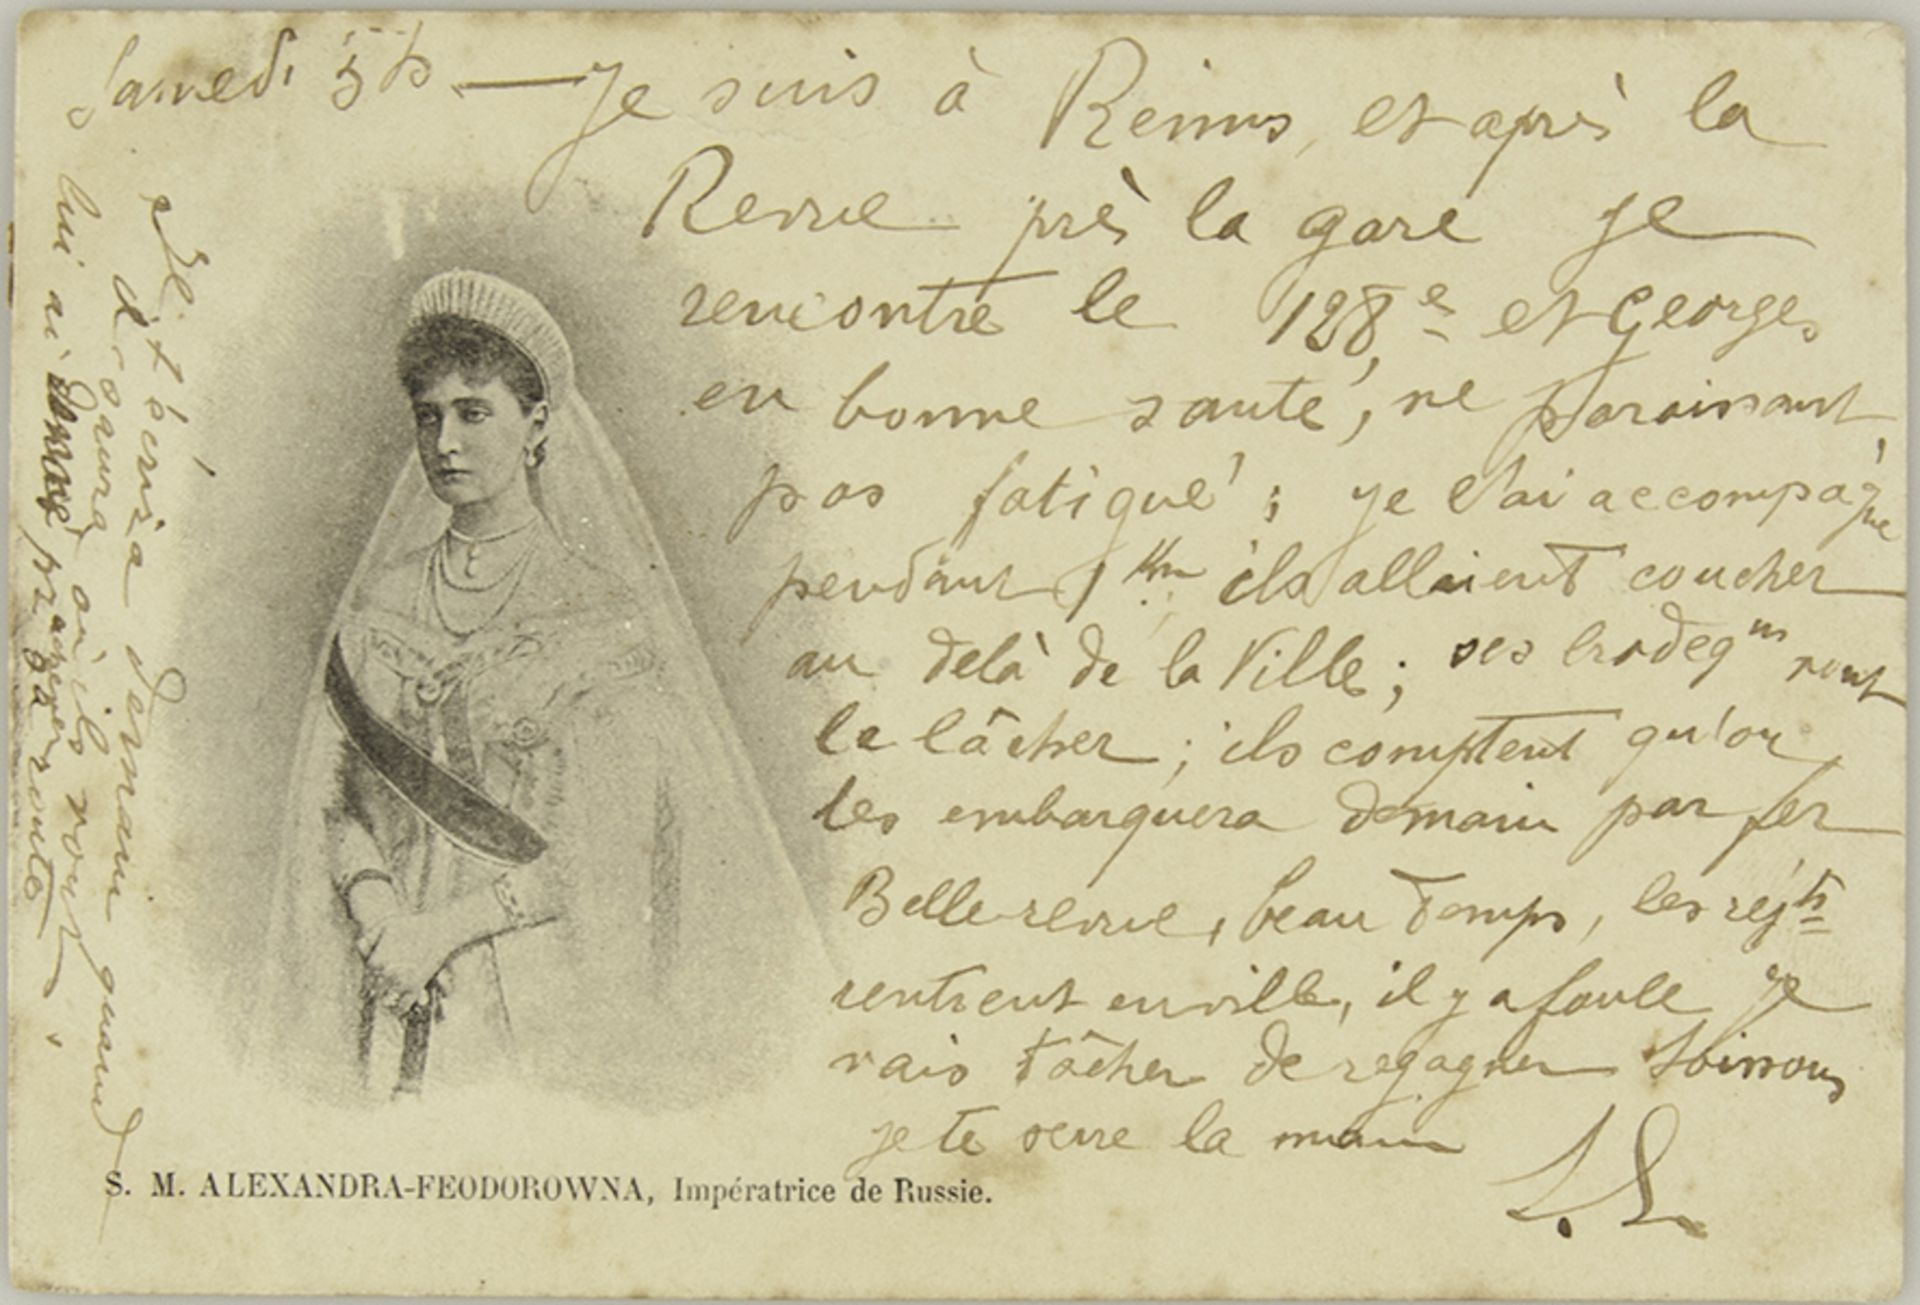 Samedi 5h — Je suis à Reims, et après la
Revue près la gare je
rencontre le 128e et Georges
en bonne santé, ne paraissant
pas fatigué ; je l'ai accompagné
pendant 1 Km ils allaient coucher
au delà de la Ville ; ses brodeqns vont
le lâcher ; ils comptent qu'on
les embarquera demain par fer
Belle revue, beau temps, les régts
rentrent en ville, il y a foule je
vais tâcher de regagner Soissons
je te serre la main
Il t'écrira demain quand
il saura où ils vont,
lui ai donné pr acheter
sa route
S. M. ALEXANDRA-FEODOROWNA, Impératrice de Russie.